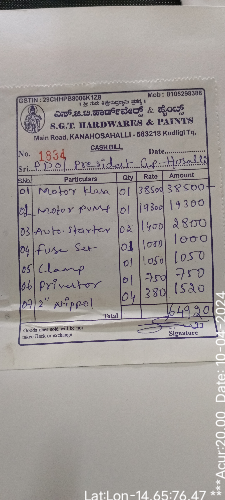 GSTIN : 29CHHPB8006K1ZB Mob : 8105268306
ಎಸ್.ಜಿ.ಟಿ.ಹಾರ್ಡ್‌ವೇರ್ & ಪೈಂಟ್ಸ್
S.G.T. HARDWARES & PAINTS
Main Road, KANAHOSAHALLI - 583218 Kudligi Tq.
CASH BILL
No. 1834 Date
Sri. PDO / President G.P. Hosalli
S.No Particulars Qty Rate Amount
01 Motor 01 38500 38500
02 Motor pump 01 19300 19300
03 Auto starter 02 1400 2800
04 Fuse Set 01 1000 1000
05 Clamp 01 1050 1050
06 01 750 750
07 2" Nippol 04 380 1520
Total 64920
Goods once sold will be not
taken Back or exchange Signature
Lat:Lon-14.65:76.47 ***Acur:20.00 Date: 10-05-2024